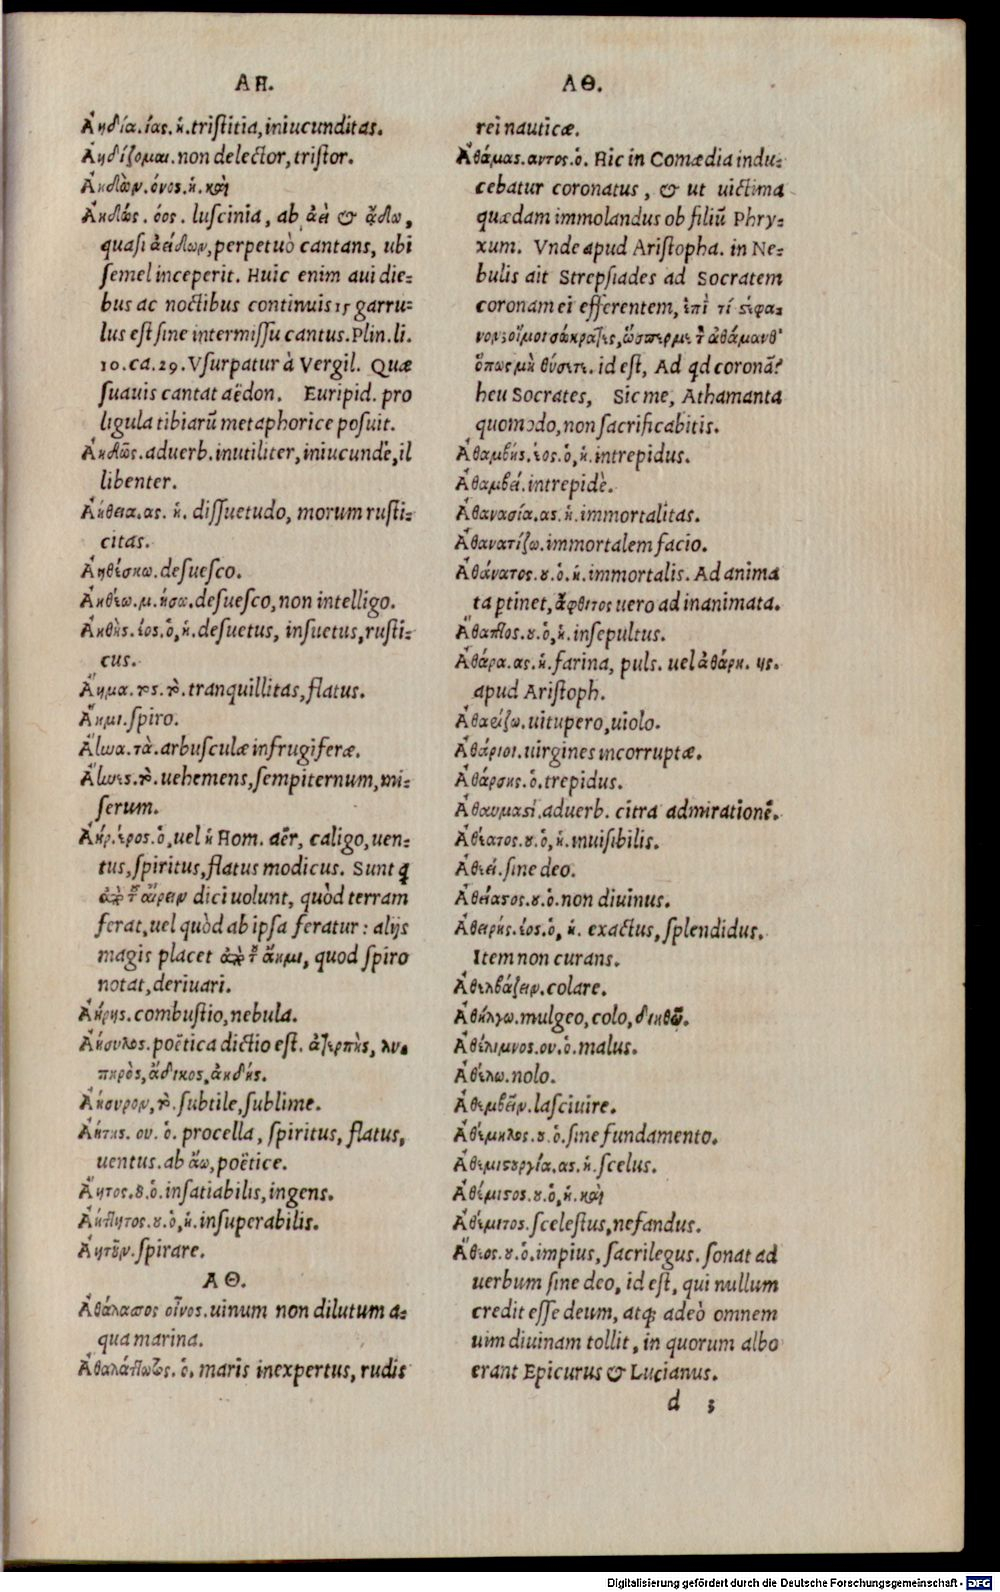 ΑΗ.
Ἀηδία.ίας.ἡ.triſtitia,iniucunditas.
Ἀηδίζομαι.non delector,triſtor.
Ἀηδὼν.όνος.ἡ.καὶ
Ἀηδώς.όος. luſcinia, ab ἀεὶ & ᾄδω,
quaſi ἀείδων,perpetuò cantans, ubi
ſemel inceperit. Huic enim aui die-
bus ac noctibus continuis 15 garru-
lus eſt ſine intermiſſu cantus.Plin.li.
10.ca.29.Vſurpatur à Vergil. Quæ
ſuauis cantat aëdon. Euripid. pro
ligula tibiarũ metaphorice poſuit.
Ἀηδῶς.aduerb.inutiliter,iniucundè,il
libenter.
Ἀήθεια.ας. ἡ. diſſuetudo, morum ruſti-
citas.
Ἀηθέσκω.deſueſco.
Ἀηθέω.μ.ήσω.deſueſco,non intelligo.
Ἀήθης.εος.ὁ,ἡ.deſuetus, inſuetus,ruſti-
cus.
Ἄημα.τος.τὸ.tranquillitas,flatus.
Ἄημι.ſpiro.
arbuſculæ infrugiferæ.
uehemens,ſempiternum,mi-
ſerum.
Ἀήρ.έρος.ὁ,uel ἡ Hom. aër, caligo,uen-
tus,ſpiritus,flatus modicus. Sunt q
ἀὴρ αἴρειν dici uolunt, quòd terram
ferat,uel quòd ab ipſa feratur: alijs
magis placet ἀὴρ ἄημι, quod ſpiro
notat,deriuari.
Ἀήρης.combuſtio,nebula.
Ἀήσυλος.poëtica dictio eſt. ἀτερπὴς, λυ-
πηρὸς,ἄδικος,ἀηδής.
Ἀήσυρον,τὸ.ſubtile,ſublime.
Ἀήτης. ου. ὁ. procella, ſpiritus, flatus,
uentus.ab ἄω,poëtice.
Ἄητος.ȣ.ὁ.inſatiabilis,ingens.
Ἀήττητος.ȣ.ὁ,ἡ.inſuperabilis.
ſpirare.
ΑΘ.
Ἀθάλασσος οἶνος.uinum non dilutum a-
qua marina.
Ἀθαλάττωτος. ὁ. maris inexpertus, rudis
ΑΘ.
rei nauticæ.
Ἀθάμας.αντος.ὁ. Hic in Comœdia indu-
cebatur coronatus, & ut uictima
quædam immolandus ob filiũ Phry-
xum. Vnde apud Ariſtopha. in Ne-
bulis ait Strepſiades ad Socratem
coronam ei efferentem, ἐπὶ τί στέφα-
νον;οἴμοι σώκρατες,ὥσπερ με τ ἀθάμανθ'
ὅπως μὴ θύσετε. id eſt, Ad qd coronã?
heu Socrates, Sic me, Athamanta
quomodo,non ſacrificabitis.
Ἀθαμβής.έος.ὁ,ἡ.intrepidus.
Ἀθαμβεί.intrepidè.
Ἀθανασία.ας.ἡ.immortalitas.
Ἀθανατίζω.immortalem facio.
Ἀθάνατος.ȣ.ὁ.ἡ.immortalis. Ad anima
ta ꝑtinet,ἄφθιτος uero ad inanimata.
Ἄθαπτος.ȣ.ὁ,ἡ.inſepultus.
Ἀθάρα.ας.ἡ.farina, puls. uel ἀθάρη. ης.
apud Ariſtoph.
uitupero,uiolo.
Ἀθάριοι.uirgines incorruptæ.
Ἀθάρσης.ὁ.trepidus.
Ἀθαυμαςί.aduerb. citra admirationẽ.
Ἀθέατος.ȣ.ὁ,ἡ.inuiſibilis.
Ἀθεεί.ſine deo.
Ἀθείαςος.ȣ.ὁ.non diuinus.
Ἀθειρής.έος.ὁ, ἡ. exactus, ſplendidus.
Item non curans.
Ἀθελβάζειν.colare.
Ἀθέλγω.mulgeo,colo,διηθῶ.
Ἀθέλιμνος.ου.ὁ.malus.
Ἀθέλω.nolo.
Ἀθεμβεῖν.laſciuire.
Ἀθέμηλος.ȣ.ὁ.ſine fundamento.
Ἀθεμιςουργία.ας.ἡ.ſcelus.
Ἀθέμιςος.ȣ.ὁ,ἡ.καὶ
Ἀθέμιτος.ſceleſtus,nefandus.
Ἄθεος.ȣ.ὁ.impius, ſacrilegus. ſonat ad
uerbum ſine deo, id eſt, qui nullum
credit eſſe deum, atq; adeò omnem
uim diuinam tollit, in quorum albo
erant Epicurus & Lucianus.
d 3
Digitalisierung gefördert durch die Deutsche Forschungsgemeinschaft - DFG